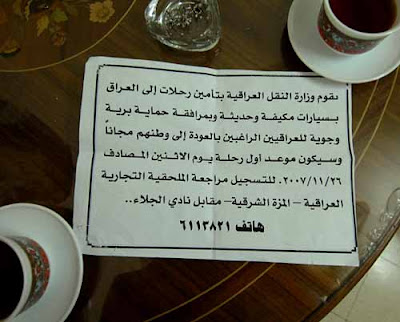 نقوم وزارة النقل العراقية بتأمين رحلات إلى العراق
بسيارات مكيفة وحديثة وبمرافقة حماية برية
وجوية للعراقيين الراغبين بالعودة إلى وطنهم مجاناً
وسيكون موعد أول رحلة يوم الاثنين المصادف
٢٠٠٧/١١/٢٦. للتسجيل مراجعة الملحقية التجارية
العراقية – المزة الشرقية– مقابل نادي الجلاء..
هاتف ٦١١٣٨٢١